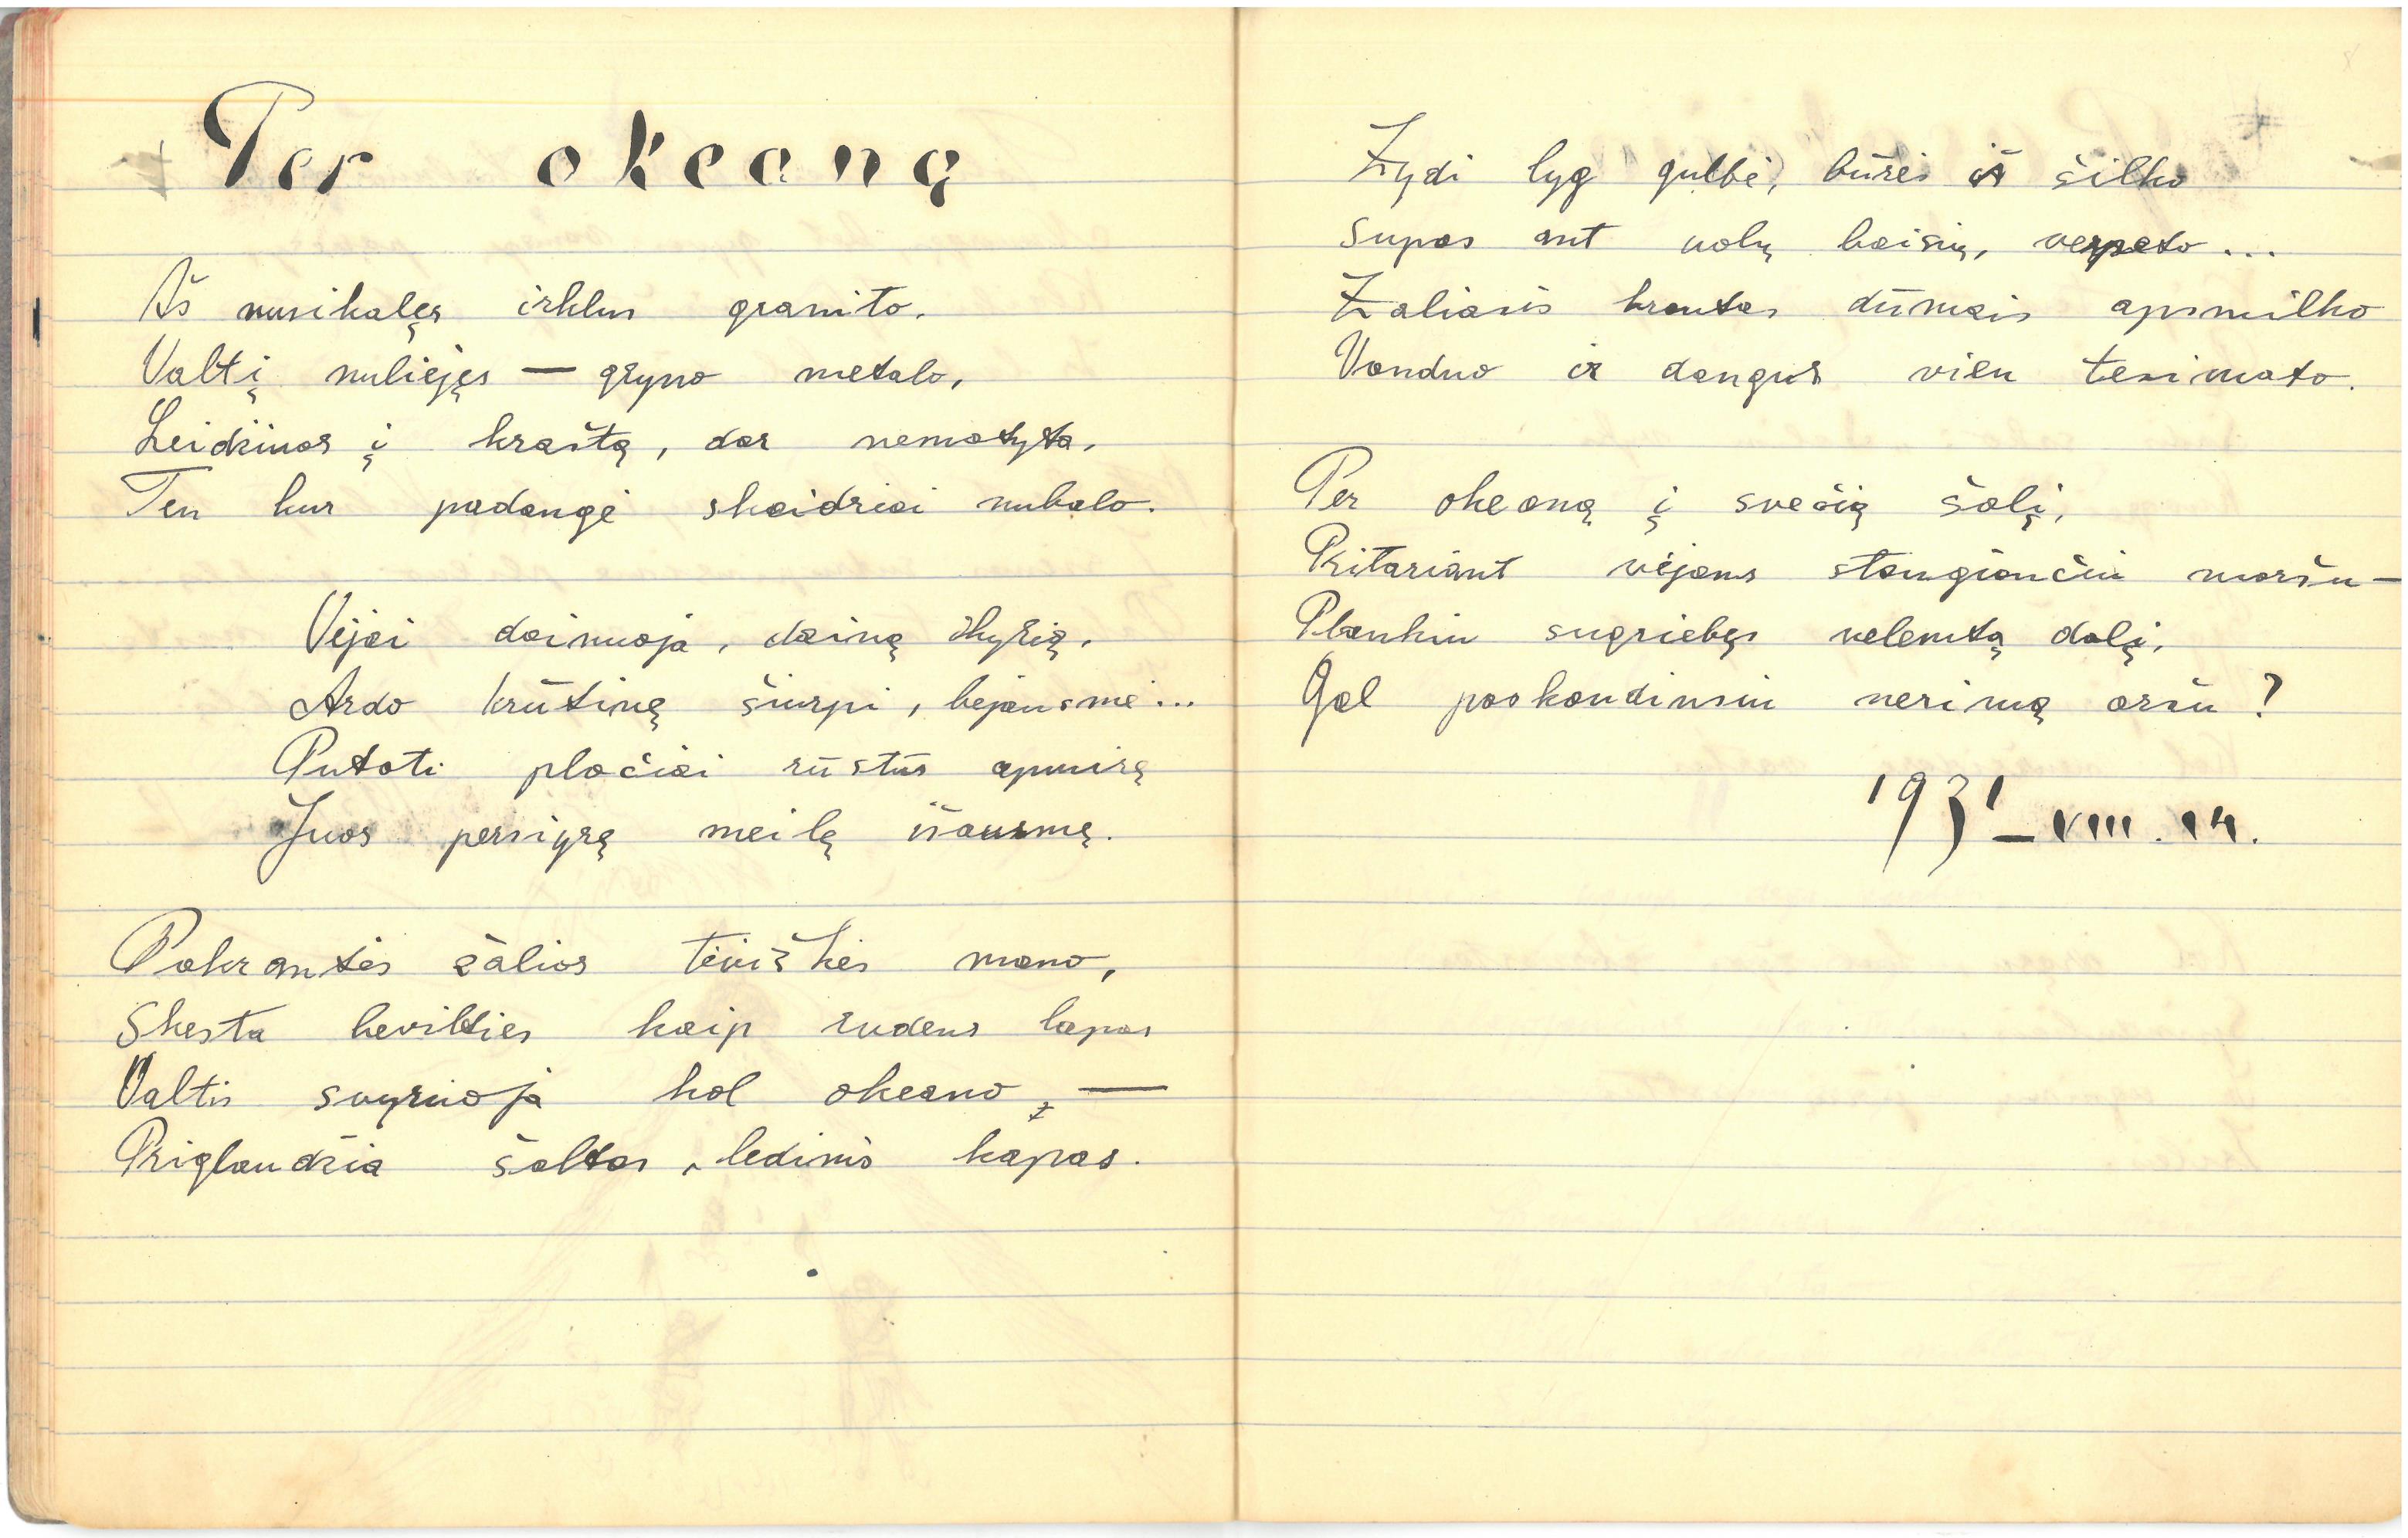 Per okeaną
Aš nusikalęs irklus granito,
Valtį nuliejęs — gryno metalo,
Leidžiuos į kraštą, dar nematytą,
Ten kur padangė skaidriai nubalo.
Vėjai dainuoja, dainą ikyrią,
Ardo krūtinę šiurpi, bejausmė...
Putoti plačiai rūstūs
Juos persigrę meilę
Pakrantės žalios tėviškės mano,
Skęsta bevilties kaip rudens lapas
Valtis svyruoja kol okeano, —
Priglaudžia šaltas, ledinis kapas.
Žydi lyg gulbė, burės iš šilko
Supas ant uolų baisių, verpeto...
Žaliasis krantas dūmais apsmilko
Vanduo ir dangus vien tesimato.
Per okeaną į svečią šalį,
Pritariant vėjams staugiančiu maršu —
Plaukiu sugriebęs nelemtą dalį,
Gal paskandinsiu nerimą aršu?
1931 – VIII. 14.